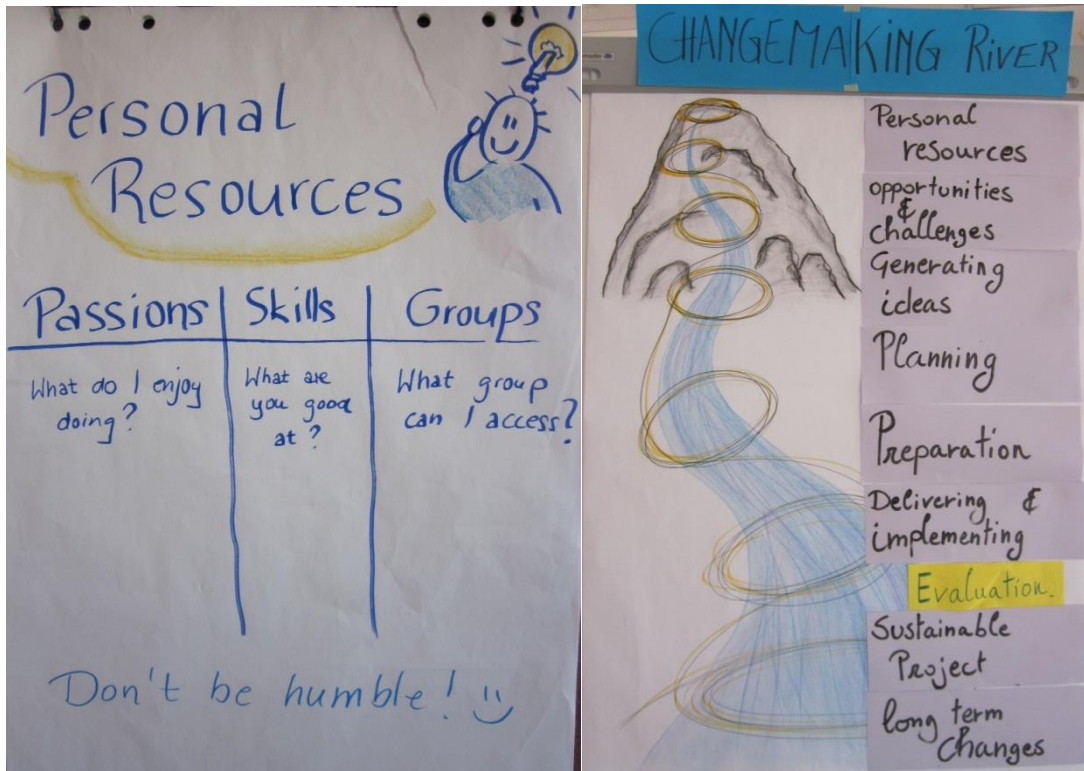 Personal
Resources
Passions Skills Groups
What do I enjoy
doing?
What are
you good
at?
What group
can I access?
Don't be humble!
CHANGEMAKING RIVER
Personal
resources
opportunities
&
challenges
Generating
ideas
Planning
Preparation
Delivering &
implementing
Evaluation.
Sustainable
Project
long term
changes